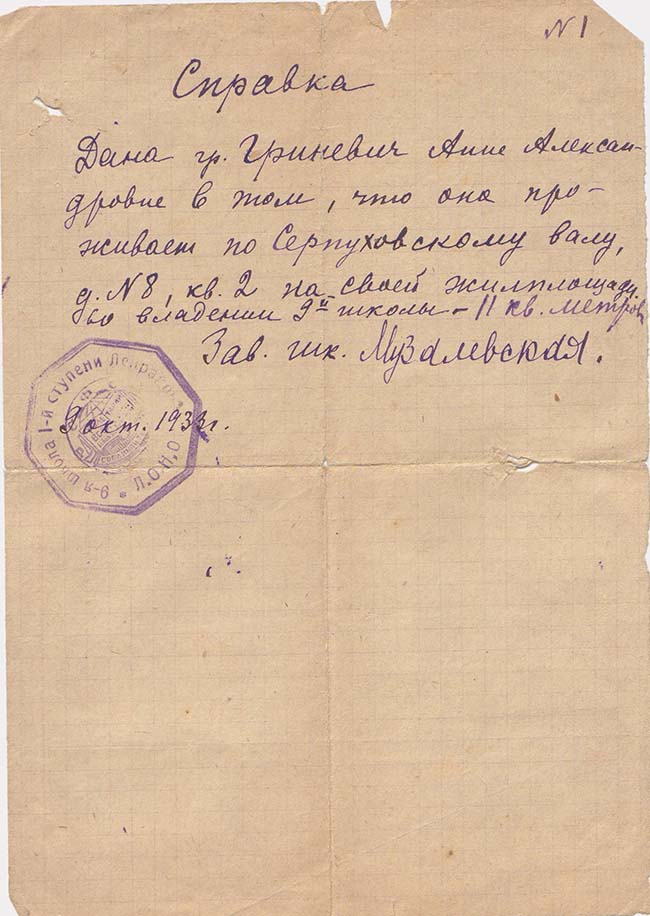 N 1
Справка
Дана гр. Гриневич Анне Алексан-
дровне в том, что она про-
живает по Серпуховскому валу,
д. N 8, кв. 2 на своей жилплощади
во владении 9й школы - 11 кв. метров
Зав. шк. Музалевская.
окт. 1933г.
9-я школа 1-й ступени
Л.О.Н.О